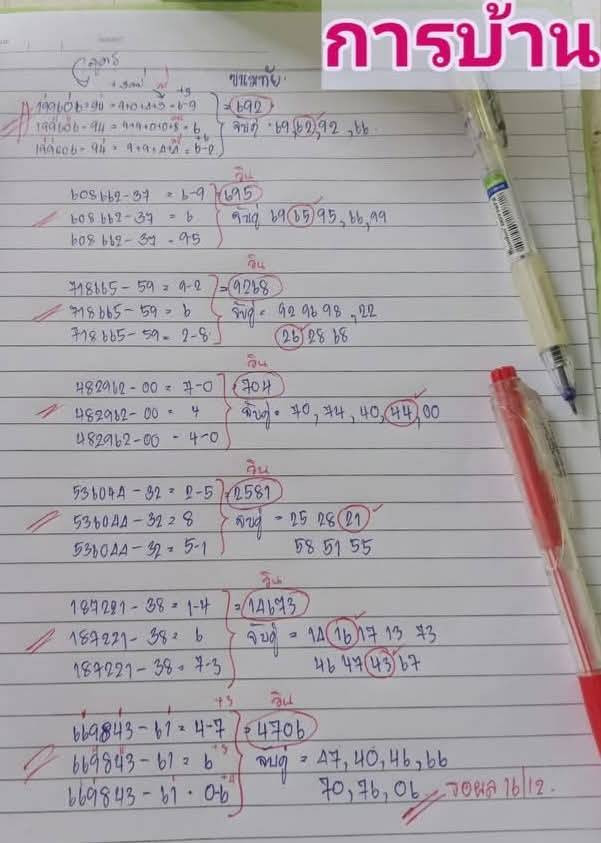 การบ้าน
สูตร
ขนมทัย.
199606-94 = 9+0+4+3 = 6-9 } = 692
199606-94 = 9+9+0+0+8 = 6 } จับคู่ = 69, 62, 92, 66
199606-94 = 9+9+4+4 = 6-2
วิน
608662-37 = 6-9 } 695
608662-37 = 6 } จับคู่ 69 65 95, 66, 99
608662-37 = 95
วิน
718665-59 = 9-2 } = 9268
718665-59 = 6 } จับคู่ = 92 96 98, 22
718665-59 = 2-8 26 28 68
วิน
482962-00 = 7-0 } 704
482962-00 = 4 } จับคู่ = 70, 74, 40, 44, 00
482962-00 = 4-0
วิน
536044-32 = 2-5 } 2581
536044-32 = 8 } จับคู่ = 25 28 21
536044-32 = 5-1 58 51 55
วิน
187221-38 = 1-4 } = 14673
187221-38 = 6 } จับคู่ = 14 16 17 13 73
187221-38 = 7-3 46 47 43 67
+3 วิน
669843-61 = 4-7 } = 4706
669843-61 = 6 } จับคู่ = 47, 40, 46, 66
669843-61 = 0-6 70, 76, 06 รอผล 16/12.